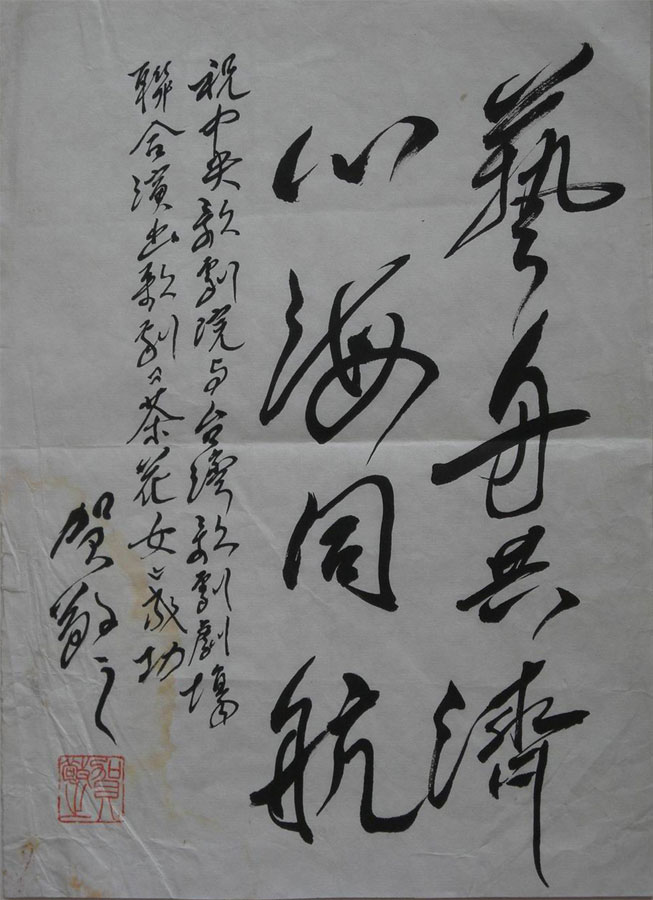 藝舟共濟
心海同航
祝中央歌劇院与台灣歌劇劇場
聯合演出歌劇《茶花女》成功
贺敬之
賀敬之